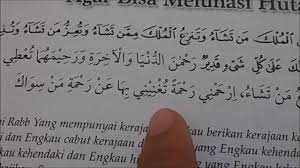 Agar Bisa Melunasi Huta
الْمُلْكَ مَنْ تَشَاءُ وَتَنْزِعُ الْمُلْكَ مِمَّنْ تَشَاءُ وَتُعِزُّ مَنْ تَشَاءُ
عَلَى كُلِّ شَيْءٍ قَدِيْرٌ رَحْمٰنَ الدُّنْيَا وَالْآخِرَةِ وَرَحِيْمَهُمَا تُعْطِي
مَنْ تَشَاءُ، اِرْحَمْنِي رَحْمَةً تُغْنِيْنِي بِهَا عَنْ رَحْمَةِ مَنْ سِوَاكَ
Rabb Yang mempunyai keraja Engkau berikan kerajaan k
Engkau cabut kerajaan d Engkau
kau kehendaki dan Engkau hi
kehendaki